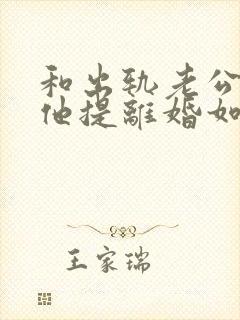 和出轨老公
他提離婚如
王家瑞